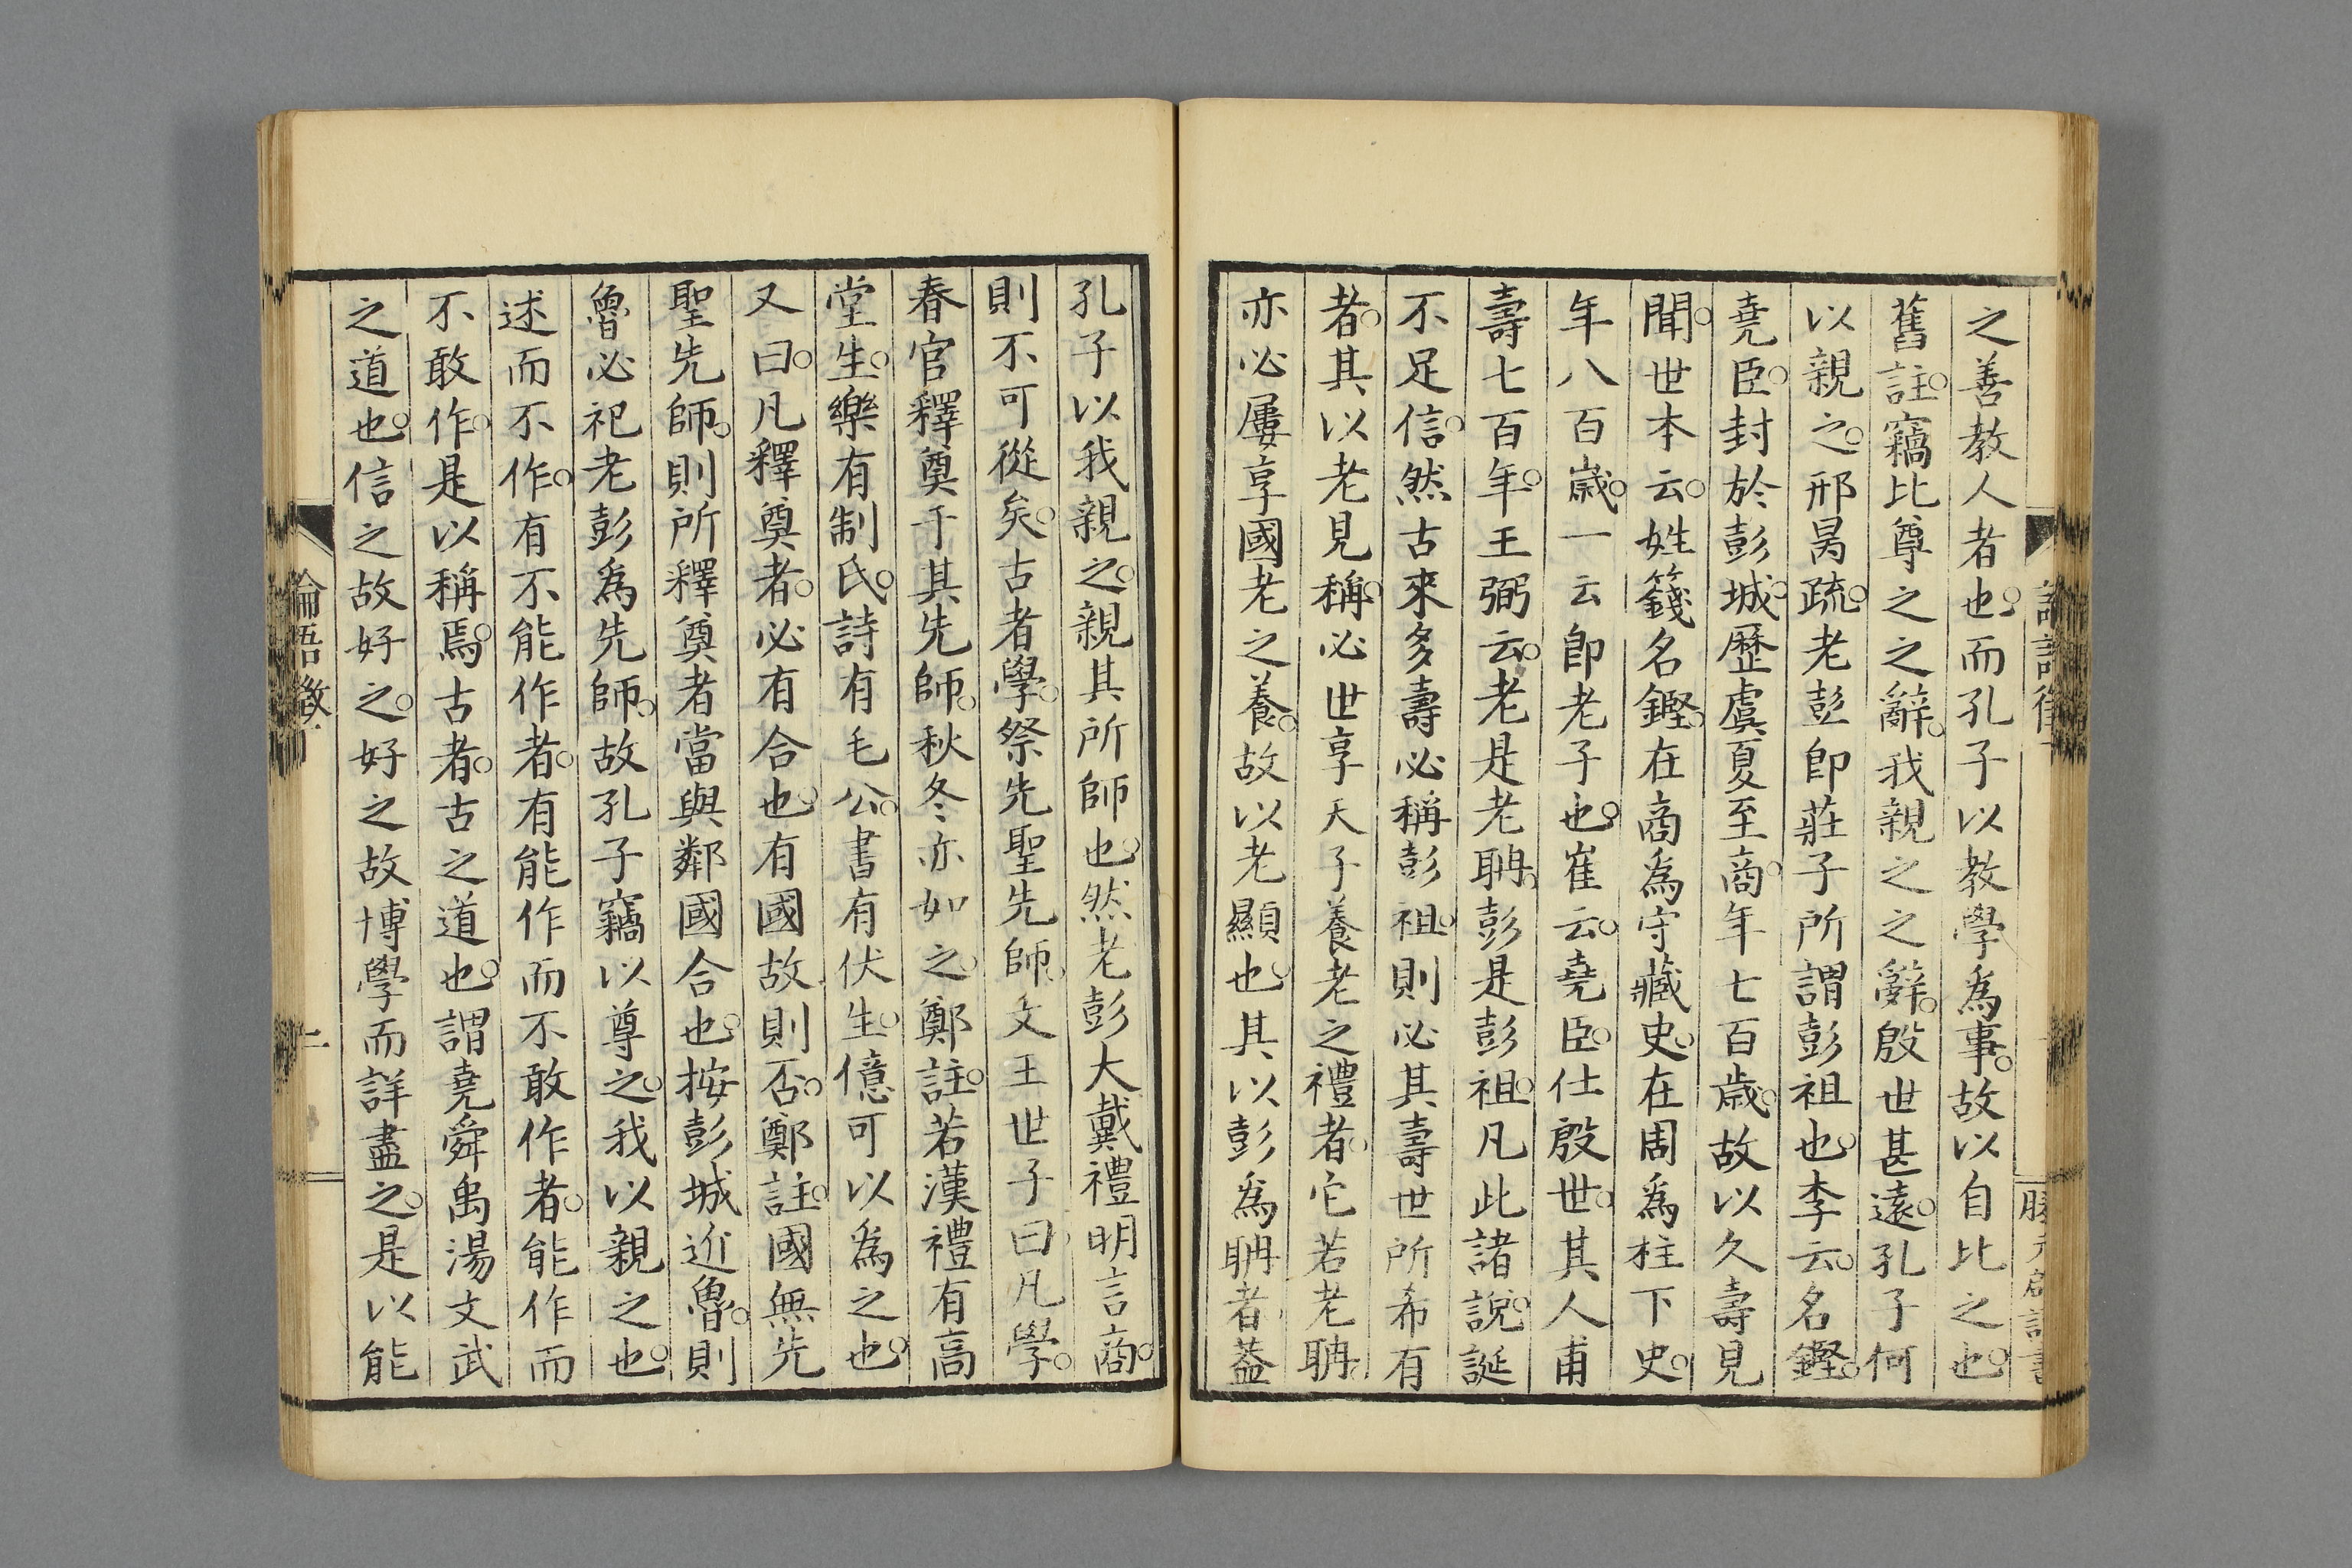 之善教人者也。而孔子以教學爲事。故以自比之也。
舊註。竊比尊之之辭。我親之之辭。殷世甚遠。孔子何
以親之。邢昺疏。老彭卽莊子所謂彭祖也。李云。名鏗。
堯臣。封於彭城。歷虞夏至商。年七百歲。故以久壽見
聞。世本云。姓籛名鏗。在商爲守藏史。在周爲柱下史。
年八百歲。一云卽老子也。崔云。堯臣。仕殷世。其人甫
壽七百年。王弼云。老是老聃。彭是彭祖。凡此諸說。誕
不足信。然古來多壽必稱彭祖。則必其壽世所希有
者。其以老見稱。必世享天子養老之禮者。它若老聃。
亦必屢享國老之養。故以老顯也。其以彭爲聃者蓋
孔子以我親之。親其所師也。然老彭大戴禮明言商。
則不可從矣。古者學。祭先聖先師。文王世子曰。凡學。
春官釋奠于其先師。秋冬亦如之。鄭註。若漢禮有高
堂生。樂有制氏。詩有毛公。書有伏生。億可以為之也。
又曰。凡釋奠者。必有合也。有國故則否。鄭註。國無先
聖先師。則所釋奠者當與鄰國合也。按彭城近魯。則
魯必祀老彭爲先師。故孔子竊以尊之。我以親之也。
述而不作。有不能作者。有能作而不敢作者。能作而
不敢作。是以稱焉。古者。古之道也。謂堯舜禹湯文武
之道也。信之故好之。好之故博學而詳盡之。是以能
論語徵